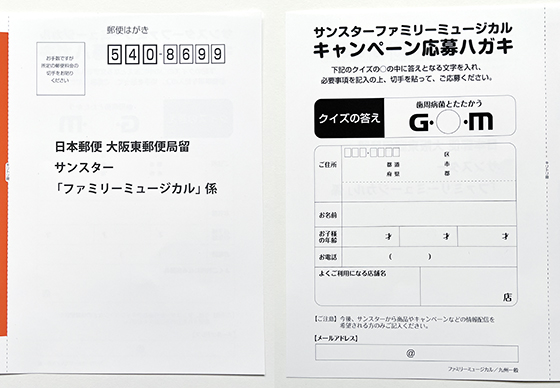 郵便はがき
540-8699
お手数ですが
所定の郵便料金の
切手をお貼り
ください
日本郵便 大阪東郵便局留
サンスター
「ファミリーミュージカル」係
サンスターファミリーミュージカル
キャンペーン応募ハガキ
下記のクイズの○の中に答えとなる文字を入れ、
必要事項を記入の上、切手を貼って、ご応募ください。
クイズの答え
歯周病菌とたたかう
G・○・m
ご住所
都 道
府 県
区
市
郡
お名前
お子様
の年齢
才 才 才
お電話 ( )
よくご利用になる店舗名
店
【ご注意】今後、サンスターから商品やキャンペーンなどの情報配信を
希望される方のみご記入ください。
【メールアドレス】
@
ファミリーミュージカル/九州一般